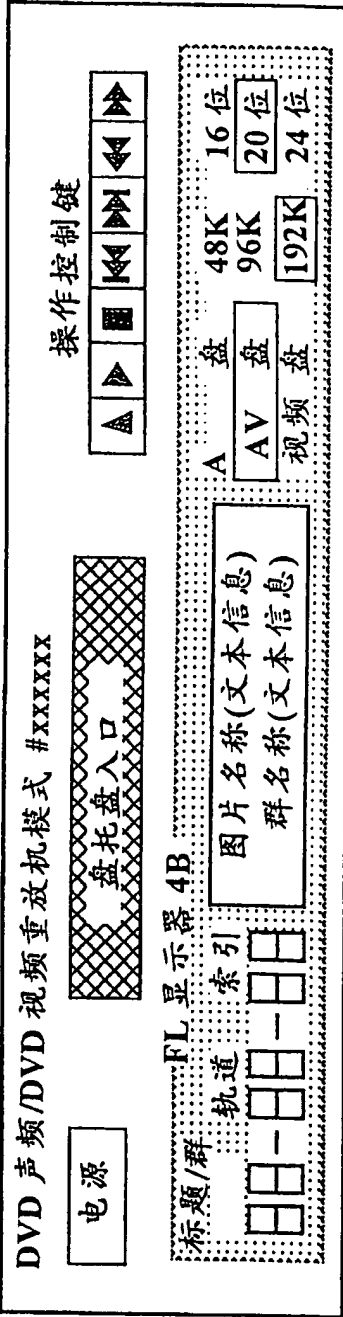 DVD 声频/DVD 视频重放机模式 #xxxxxx
电源
盘托盘入口
操作控制键
FL 显示器 4B
标题/群
轨道
索引
图片名称(文本信息)
群名称(文本信息)
A 盘
AV 盘
视频 盘
48K
96K
192K
16 位
20 位
24 位